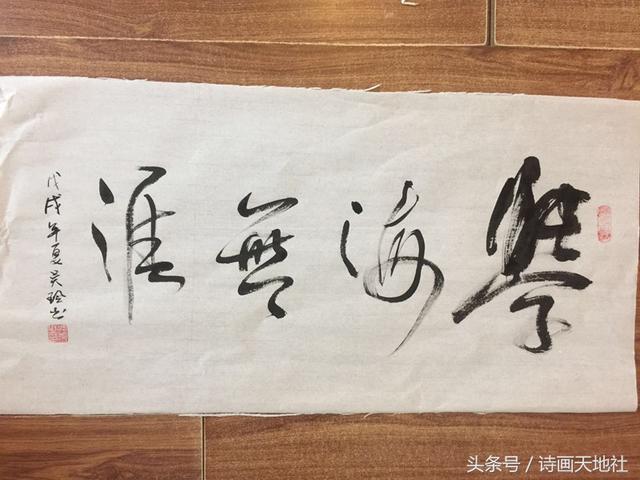 學海無涯
戊戌年夏吴玲书
头条号 / 诗画天地社